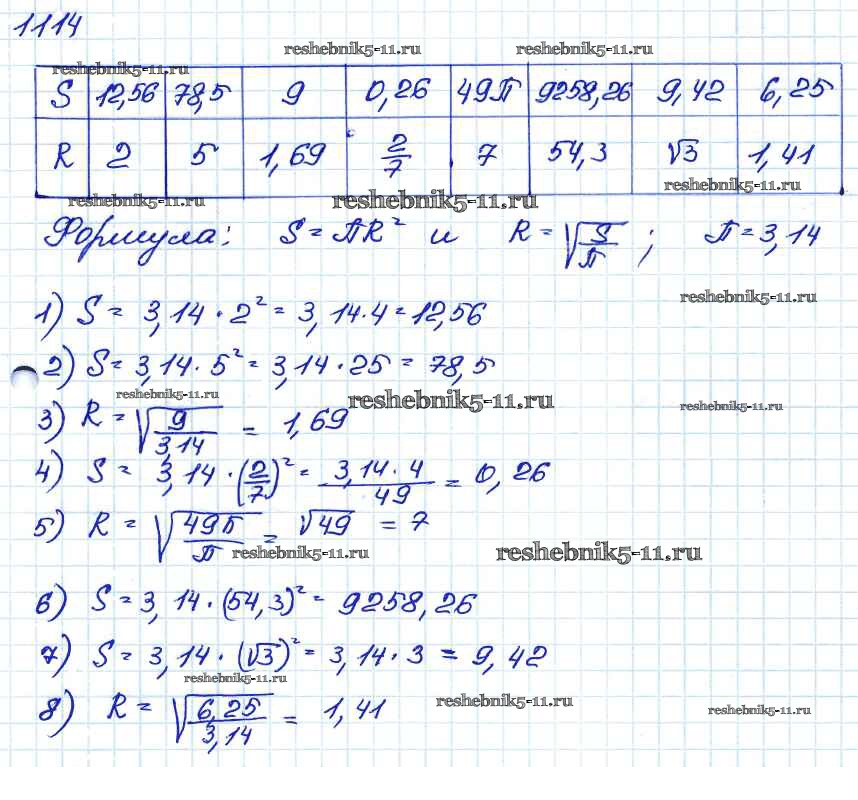 1114
reshebnik5-11.ru reshebnik5-11.ru
reshebnik5-11.ru
S 12,56 78,5 9 0,26 49π 9258,26 9,42 6,25
R 2 5 1,69 2/7 7 54,3 √3 1,41
reshebnik5-11.ru reshebnik5-11.ru reshebnik5-11.ru
Формула: S = πR² и R = √(S/π) ; π = 3,14
reshebnik5-11.ru
1) S = 3,14 · 2² = 3,14 · 4 = 12,56
2) S = 3,14 · 5² = 3,14 · 25 = 78,5
reshebnik5-11.ru reshebnik5-11.ru reshebnik5-11.ru
3) R = √(9/3,14) = 1,69
4) S = 3,14 · (2/7)² = 3,14 · 4/49 = 0,26
5) R = √(49π/π) = √49 = 7
reshebnik5-11.ru reshebnik5-11.ru
6) S = 3,14 · (54,3)² = 9258,26
7) S = 3,14 · (√3)² = 3,14 · 3 = 9,42
reshebnik5-11.ru
8) R = √(6,25/3,14) = 1,41
reshebnik5-11.ru reshebnik5-11.ru